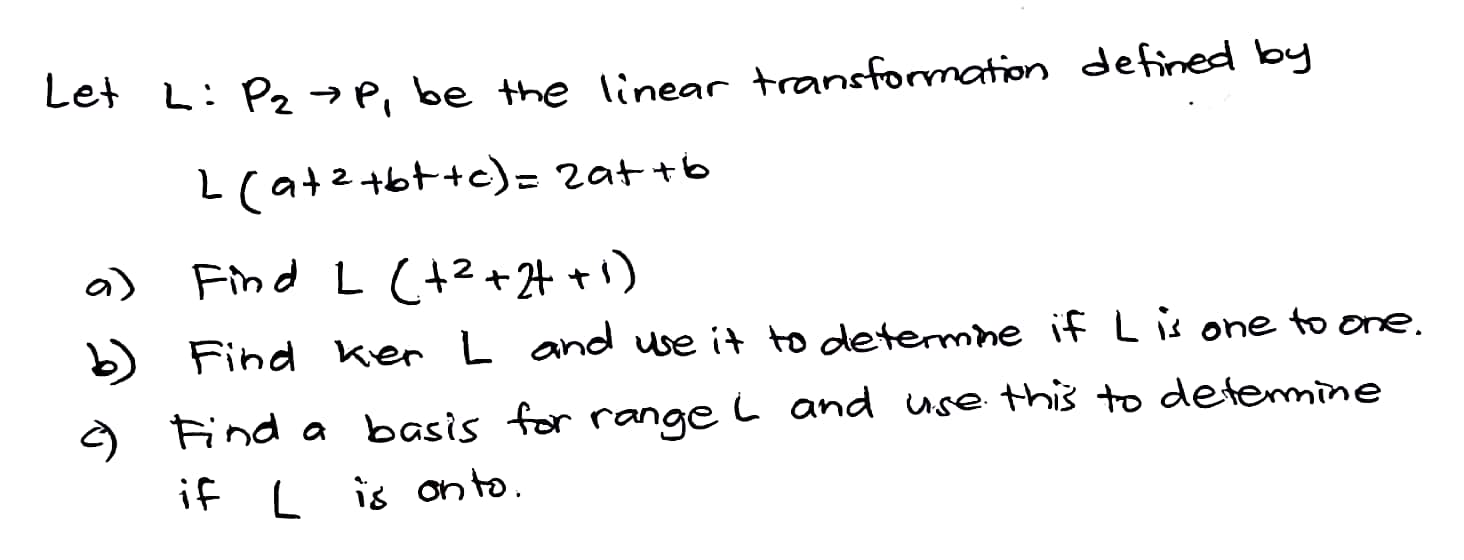 Let L: P₂ → P₁ be the linear transformation defined by
L(at²+bt+c)= 2at+b
a) Find L (t²+2t+1)
b) Find ker L and use it to determine if L is one to one.
c) Find a basis for range L and use this to determine
if L is onto.